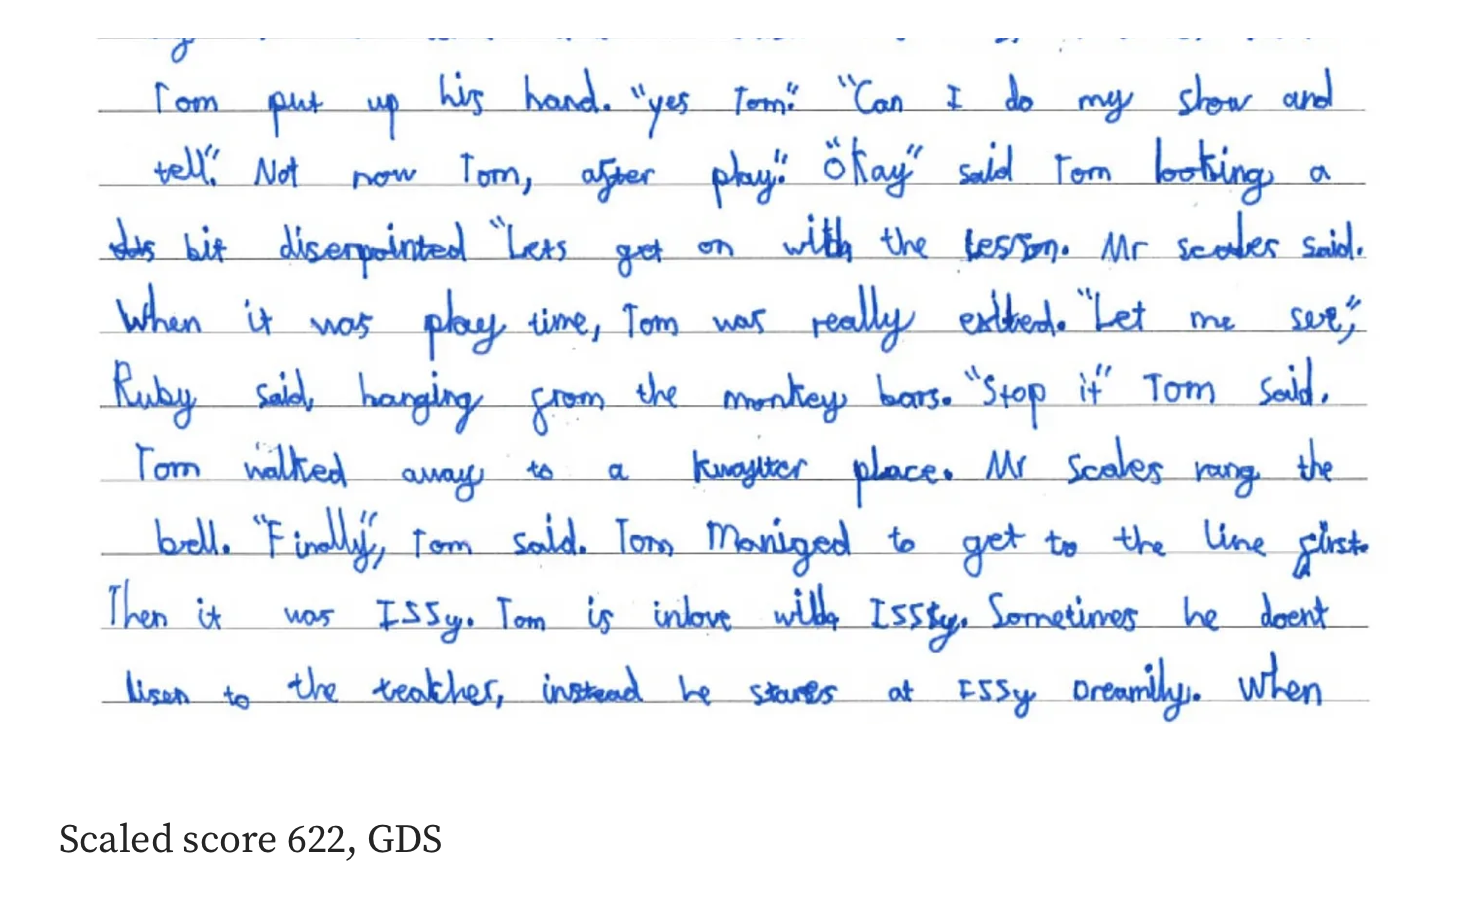 Tom put up his hand. "yes Tom." "Can I do my show and
tell." Not now Tom, after play." "Okay" said Tom looking a
bit diserpointed "Lets get on with the lesson. Mr scales said.
When it was play time, Tom was really exited. "Let me see",
Ruby said, hanging from the monkey bars. "Stop it" Tom said.
Tom walked away to a kwayiter place. Mr Scales rang the
bell. "Finally", Tom said. Tom Maniged to get to the line first.
Then it was ISSy. Tom is inlove with ISSy. Sometimes he doent
lisen to the teatcher, instead he stares at ISSy Dreamily. When
Scaled score 622, GDS